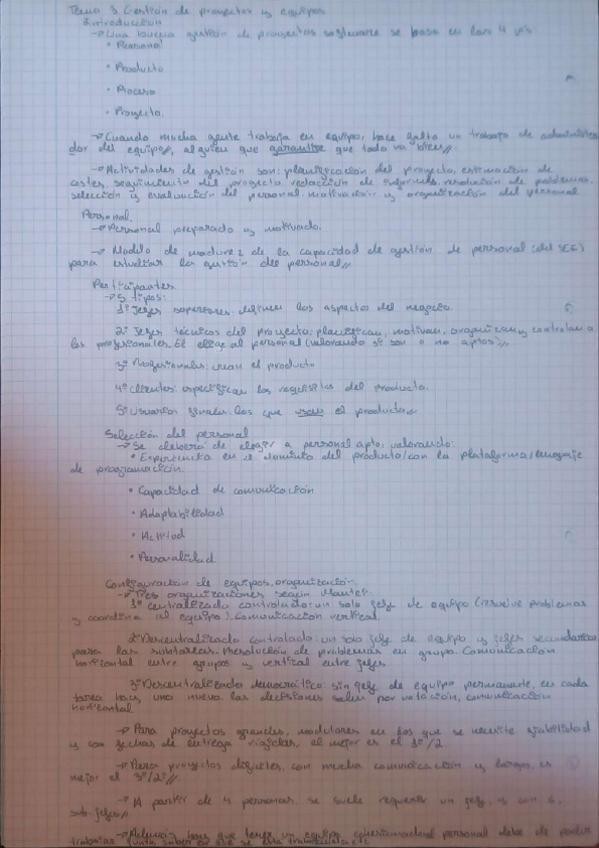 Tema 3 Gestión de proyectos y equipos
Introducción
→ Una buena gestión de proyectos software se basa en las 4 p's
• Personal
• Producto
• Proceso
• Proyecto.
→ Cuando mucha gente trabaja en equipo, hace falta un trabajo de administra
dor del equipo, alguien que garantice que todo va bien
→ Actividades de gestión son: planificación del proyecto, estimación de
costes, seguimiento del proyecto, redacción de informes, resolución de problemas,
selección y evaluación del personal, motivación y organización del personal
Personal
→ Personal preparado y motivado.
→ Modelo de madurez de la capacidad de gestión de personal (del SEI)
para estudiar la gestión del personal
Participantes
→ 5 tipos:
1º Jefes superiores: definen los aspectos del negocio.
2º Jefes técnicos del proyecto: planifican, motivan, organizan y controlan a
los profesionales. Él elige al personal (valorando si son o no aptos)
3º Profesionales: crean el producto
4º Clientes: especifican los requisitos del producto.
5º Usuarios finales: los que usan el producto
Selección del personal
→ Se deberá de elegir a personal apto, valorando:
• Experiencia en el dominio del producto/con la plataforma/lenguaje
de programación.
• Capacidad de comunicación
• Adaptabilidad
• Actitud
• Personalidad
Configuración de equipos, organización
→ Tres organizaciones según Mantei:
1º Centralizado controlado: un solo jefe de equipo (resuelve problemas
y coordina el equipo). Comunicación vertical.
2º Descentralizado controlado: un solo jefe de equipo y jefes secundarios
para las subtareas. Resolución de problemas en grupo. Comunicación
horizontal entre grupos y vertical entre jefes
3º Descentralizado democrático: sin jefe de equipo permanente, en cada
tarea hay uno nuevo. las decisiones salen por votación, comunicación
horizontal
→ Para proyectos grandes, modulares en los que se necesite fiabilidad
y con fechas de entrega rígidas, el mejor es el 1º/2.
→ Para proyectos difíciles, con mucha comunicación y largos, es
mejor el 3º/2º
→ A partir de 4 personas, se suele requerir un jefe, y con 6,
sub-jefes
→ Además hay que tener un equipo personal debe de poder
trabajar junto saber en que se esta trabajando etc